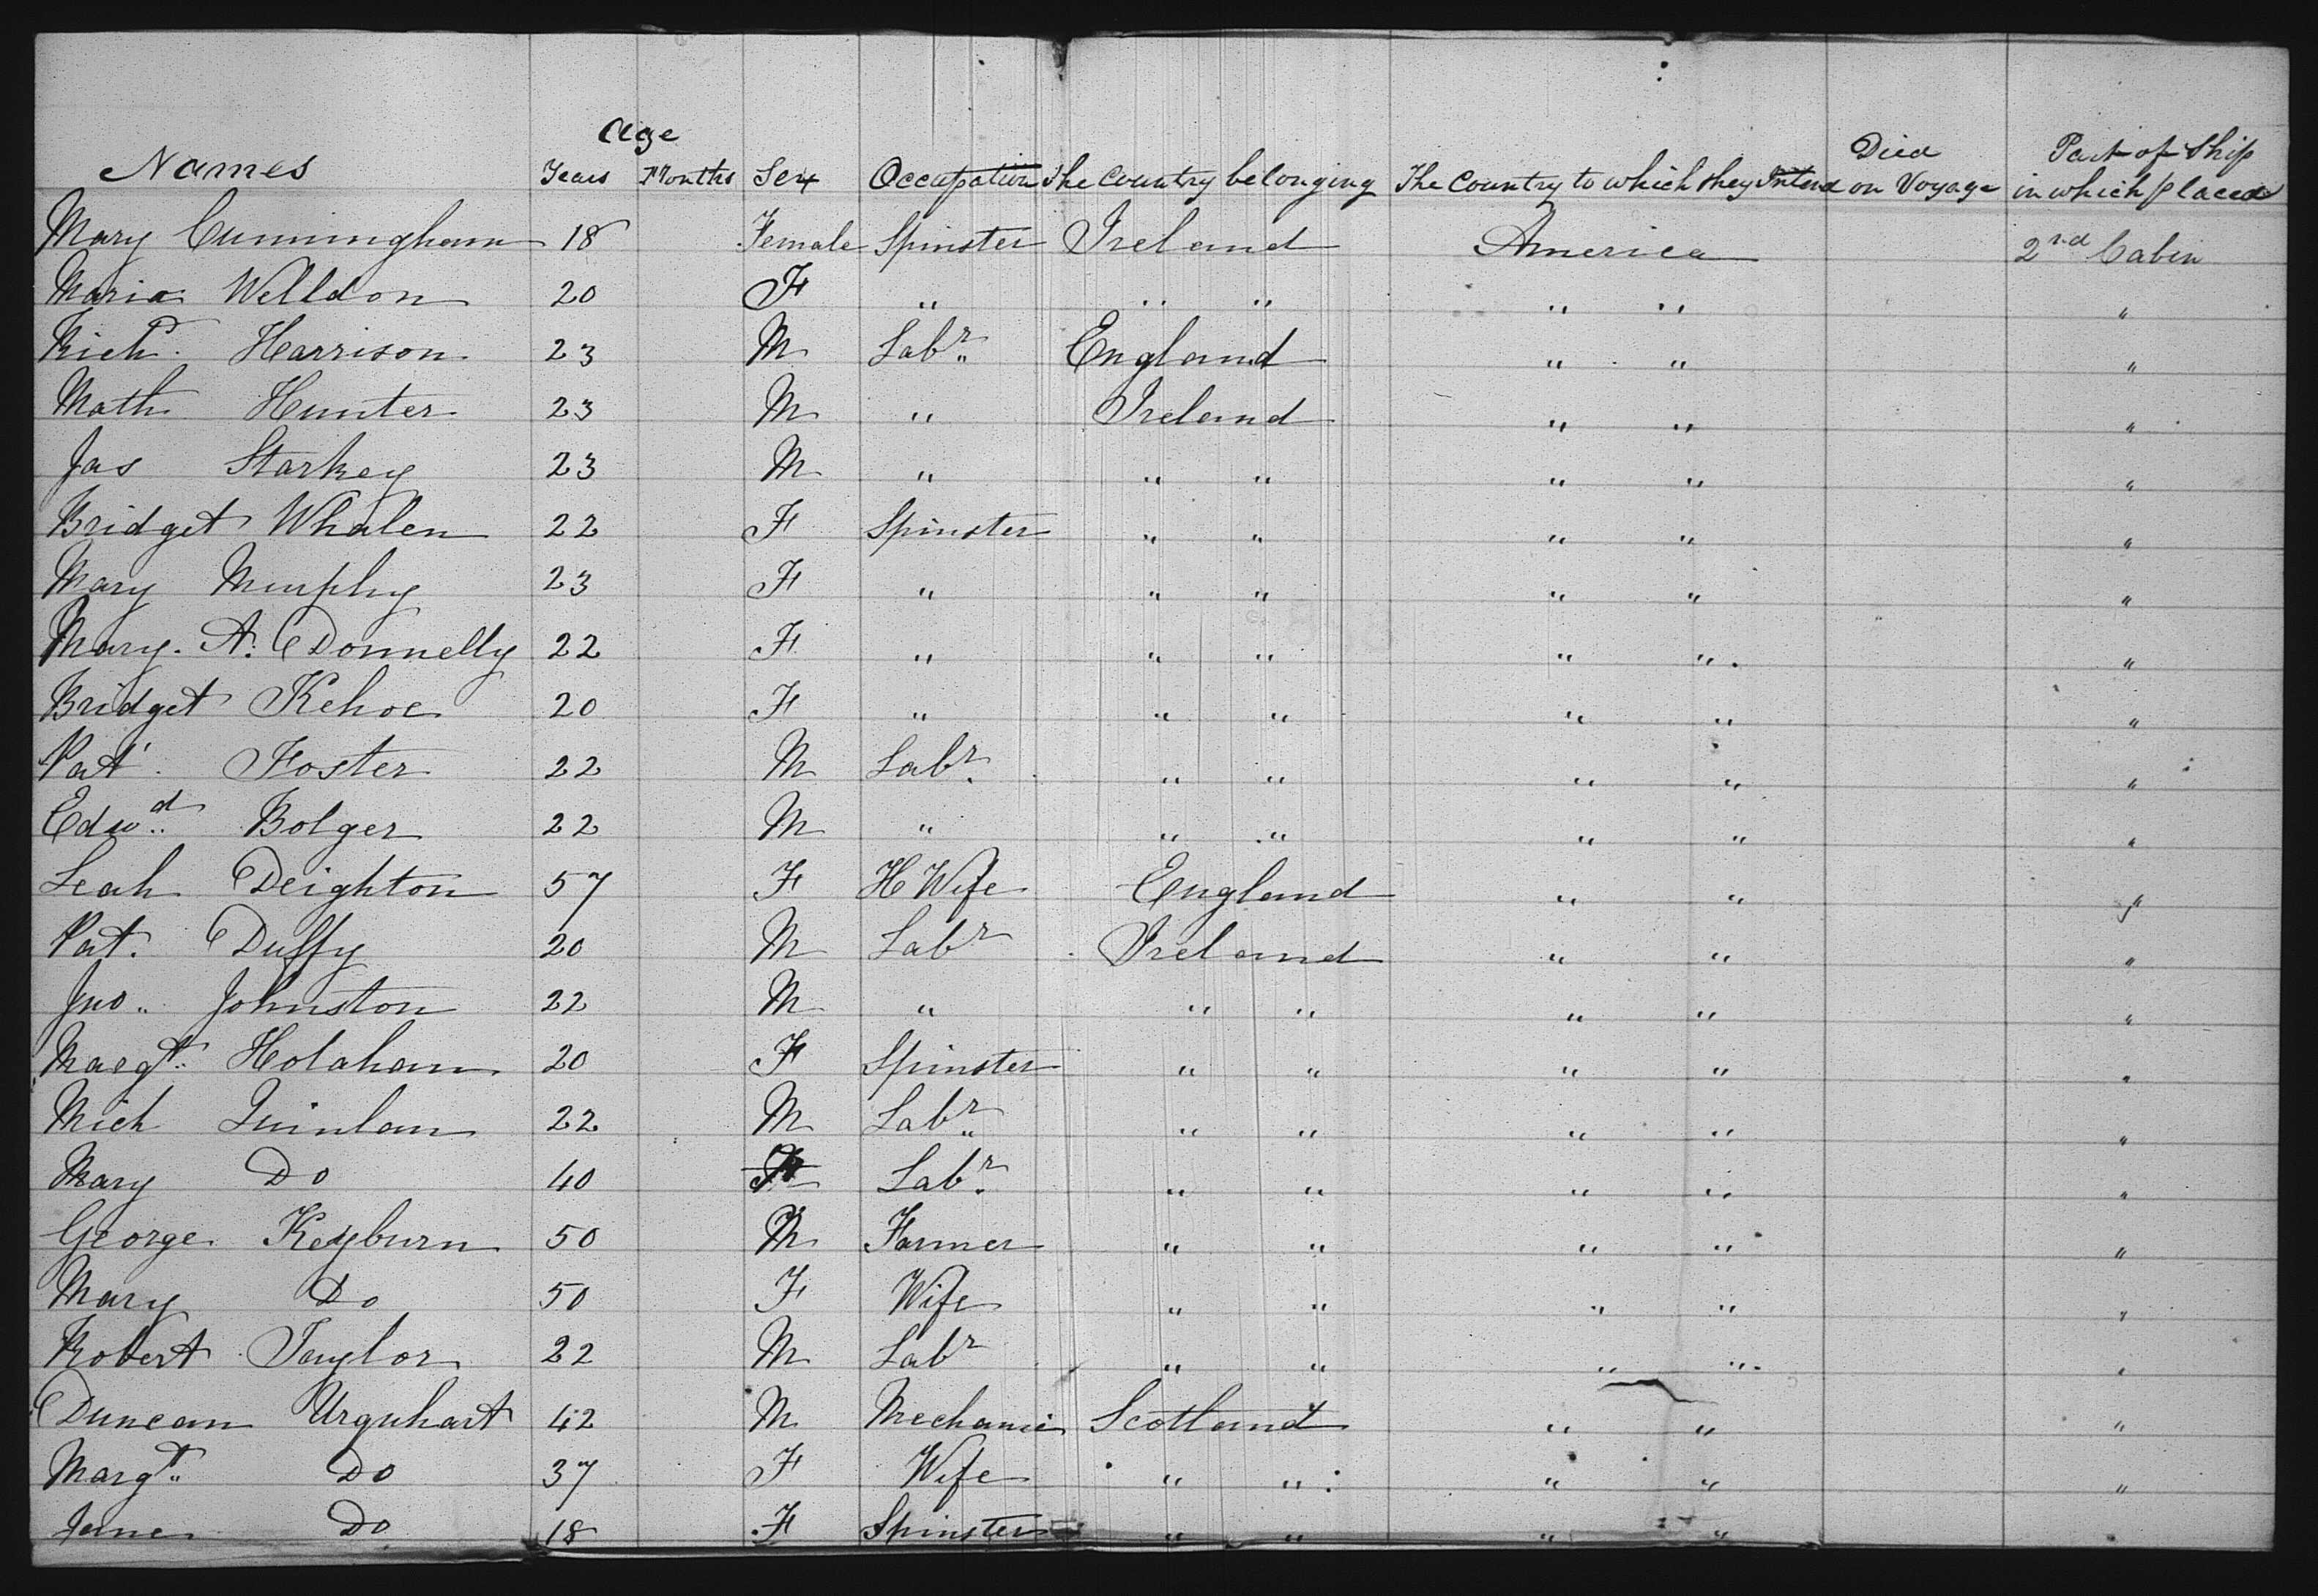 Age Died Part of Ship
Names Years Months Sex Occupation The Country belonging The Country to which they Intend on Voyage in which placed
Mary Cunningham 18 Female Spinster Ireland America 2nd Cabin
Maria Welldon 20 F " " " " " "
Richd. Harrison 23 M Labr. England " " "
Math Hunter 23 M " Ireland " " "
Jas Starkey 23 M " " " " " "
Bridget Whalen 22 F Spinster " " " " "
Mary Murphy 23 F " " " " " "
Mary. A. Donnelly 22 F " " " " " "
Bridget Kehoe 20 F " " " " " "
Pat. Foster 22 M Labr. " " " " "
Edwd. Bolger 22 M " " " " " "
Leah Deighton 57 F H Wife England " " "
Pat. Duffy 20 M Labr Ireland " " "
Jno. Johnston 22 M " " " " " "
Margt. Holahan 20 F Spinster " " " " "
Mich Quinlan 22 M Labr. " " " " "
Mary Do 40 F Labr. " " " " "
George Keyburn 50 M Farmer " " " " "
Mary Do 50 F Wife " " " " "
Robert Taylor 22 M Labr " " " " "
Duncan Urquhart 42 M Mechanic Scotland " " "
Margt. Do 37 F Wife " " " " "
Jane Do 18 F Spinster " " " "